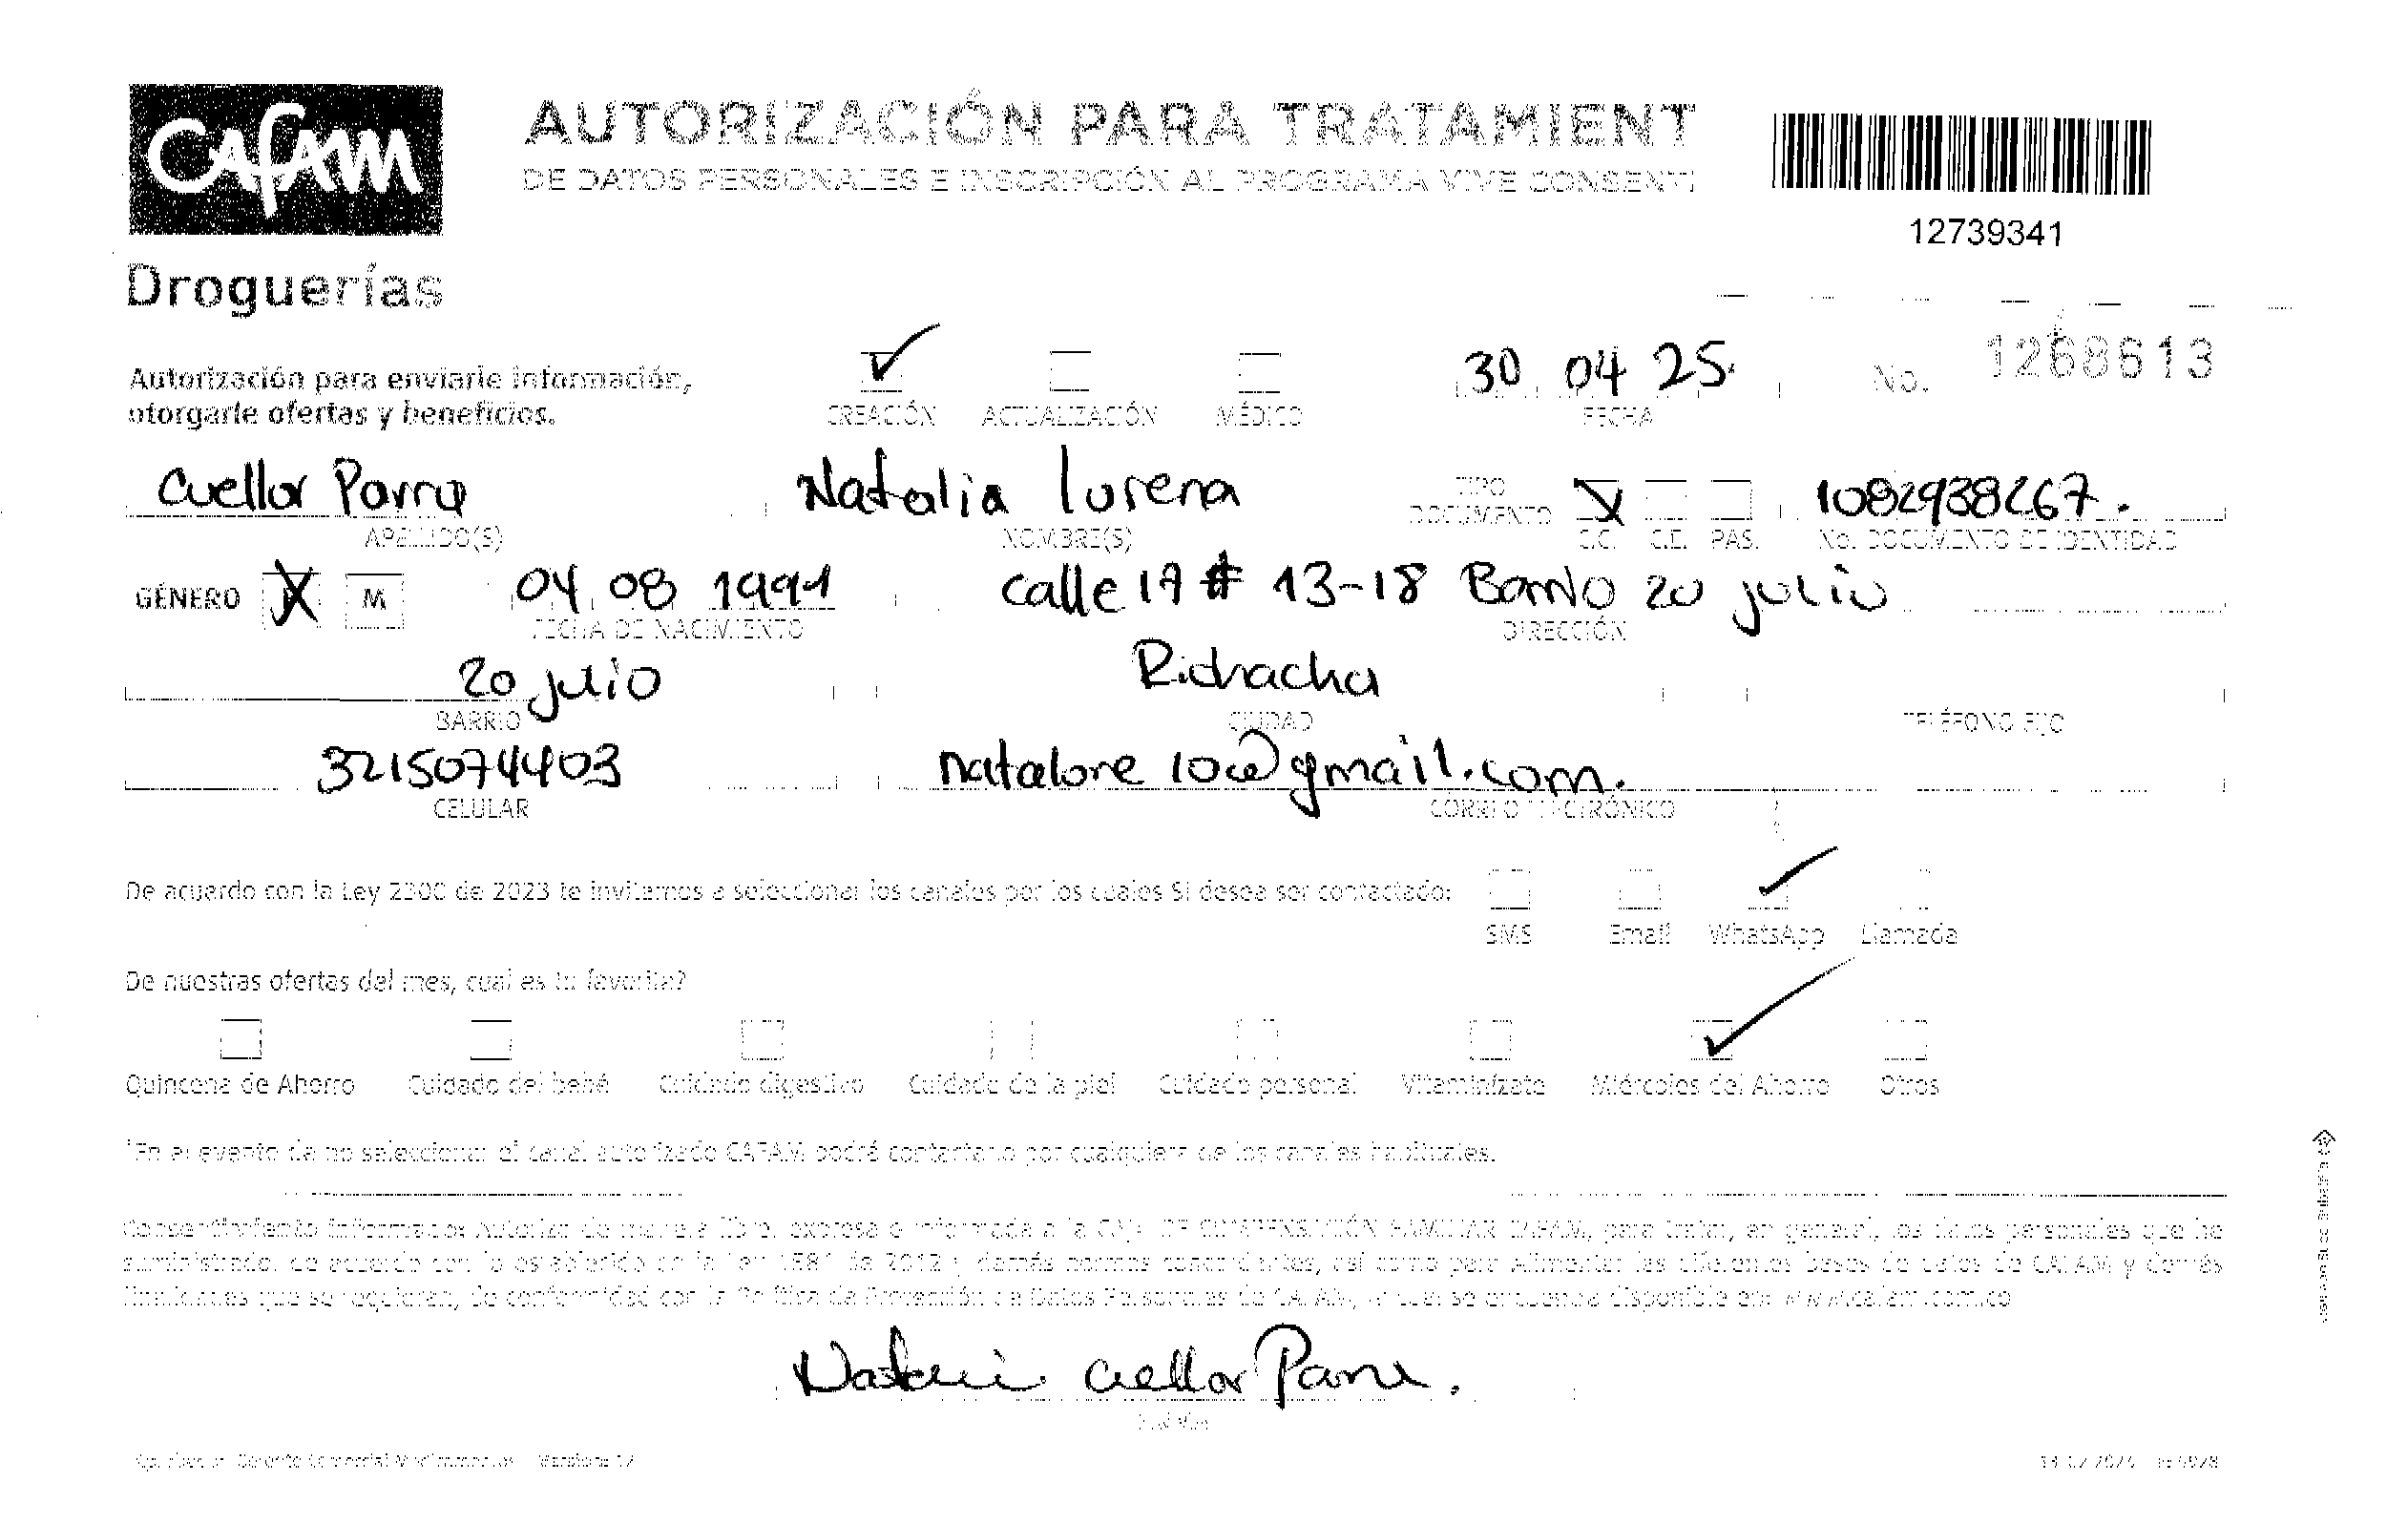 CAFAM
Droguerías
AUTORIZACIÓN PARA TRATAMIENT
DE DATOS PERSONALES E INSCRIPCIÓN AL PROGRAMA VIVE CONSENTI
12739341
Autorización para enviarle información,
otorgarle ofertas y beneficios.
CREACIÓN ACTUALIZACIÓN MÉDICO
30 04 25
FECHA
No. 1268613
Cuellar Parra Natalia Lorena
APELLIDO(S) NOMBRE(S)
TIPO DOCUMENTO C.C. C.E. PAS.
1082938267.
No. DOCUMENTO DE IDENTIDAD
GÉNERO X M 04 08 1991 calle 17 # 13-18 Barrio 20 julio
FECHA DE NACIMIENTO DIRECCIÓN
20 julio Riohacha
BARRIO CIUDAD TELÉFONO FIJO
3215074403 natalore10@gmail.com.
CELULAR CORREO ELECTRÓNICO
De acuerdo con la Ley 2300 de 2023 te invitamos a seleccionar los canales por los cuales SI desea ser contactado:
SMS Email WhatsApp Llamada
De nuestras ofertas del mes, cual es tu favorita?
Quincena de Ahorro Cuidado del bebé Cuidado digestivo Cuidado de la piel Cuidado personal Vitaminízate Miércoles del Ahorro Otros
*En el evento de no seleccionar el canal autorizado CAFAM podrá contactarlo por cualquiera de los canales habituales.
Consentimiento Informado: Autorizo de manera libre, expresa e informada a la CAJA DE COMPENSACIÓN FAMILIAR CAFAM, para tratar, en general, los datos personales que he
suministrado, de acuerdo con lo establecido en la Ley 1581 de 2012 y demás normas concordantes, así como para alimentar las diferentes bases de datos de CAFAM y demás
finalidades que se requieran, de conformidad con la Política de Protección de Datos Personales de CAFAM, la cual se encuentra disponible en: www.cafam.com.co
Natalia Cuellar Parra.
FIRMA